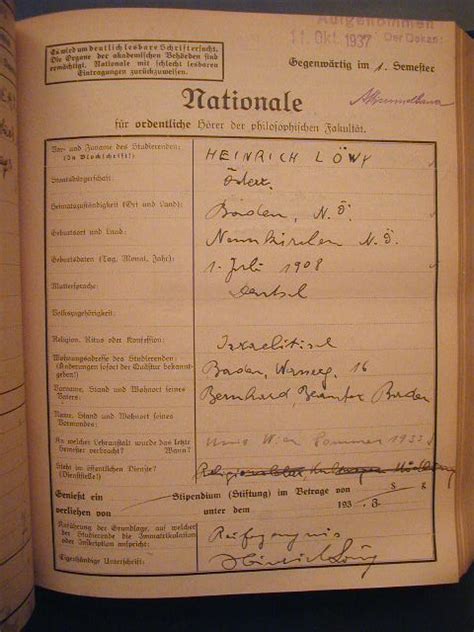 Aufgenommen
11. Okt. 1937 Der Dekan:
Es wird um deutlich lesbare Schrift ersucht.
Die Organe der akademischen Behörden sind
ermächtigt, Nationale mit schlecht lesbaren
Eintragungen zurückzuweisen.
Gegenwärtig im 1. Semester
Nationale
für ordentliche Hörer der philosophischen Fakultät.
Vor- und Zuname des Studierenden: HEINRICH LÖWY
(In Blockschrift!)
Staatsbürgerschaft: Österr.
Heimatzuständigkeit (Ort und Land): Baden, N. Ö.
Geburtsort und Land: Neunkirchen N. Ö.
Geburtsdaten (Tag, Monat, Jahr): 1. Juli 1908
Muttersprache: Deutsch
Volkszugehörigkeit:
Religion, Ritus oder Konfession: Israelitisch
Wohnungsadresse des Studierenden: Baden, 16
(Änderungen sofort der Quästur bekannt-
geben!)
Vorname, Stand und Wohnort seines Bernhard, Beamter Baden
Vaters:
Name, Stand und Wohnort seines
Vormundes:
An welcher Lehranstalt wurde das letzte Univ. Wien Sommer
Semester verbracht? Wann?
Steht im öffentlichen Dienste?
(Dienststelle!)
Genießt ein Stipendium (Stiftung) im Betrage von S g
verliehen von unter dem 193 . 3.
Anführung der Grundlage, auf welcher Reifezeugnis
der Studierende die Immatrikulation
oder Inskription anspricht:
Eigenhändige Unterschrift: Heinrich Löwy